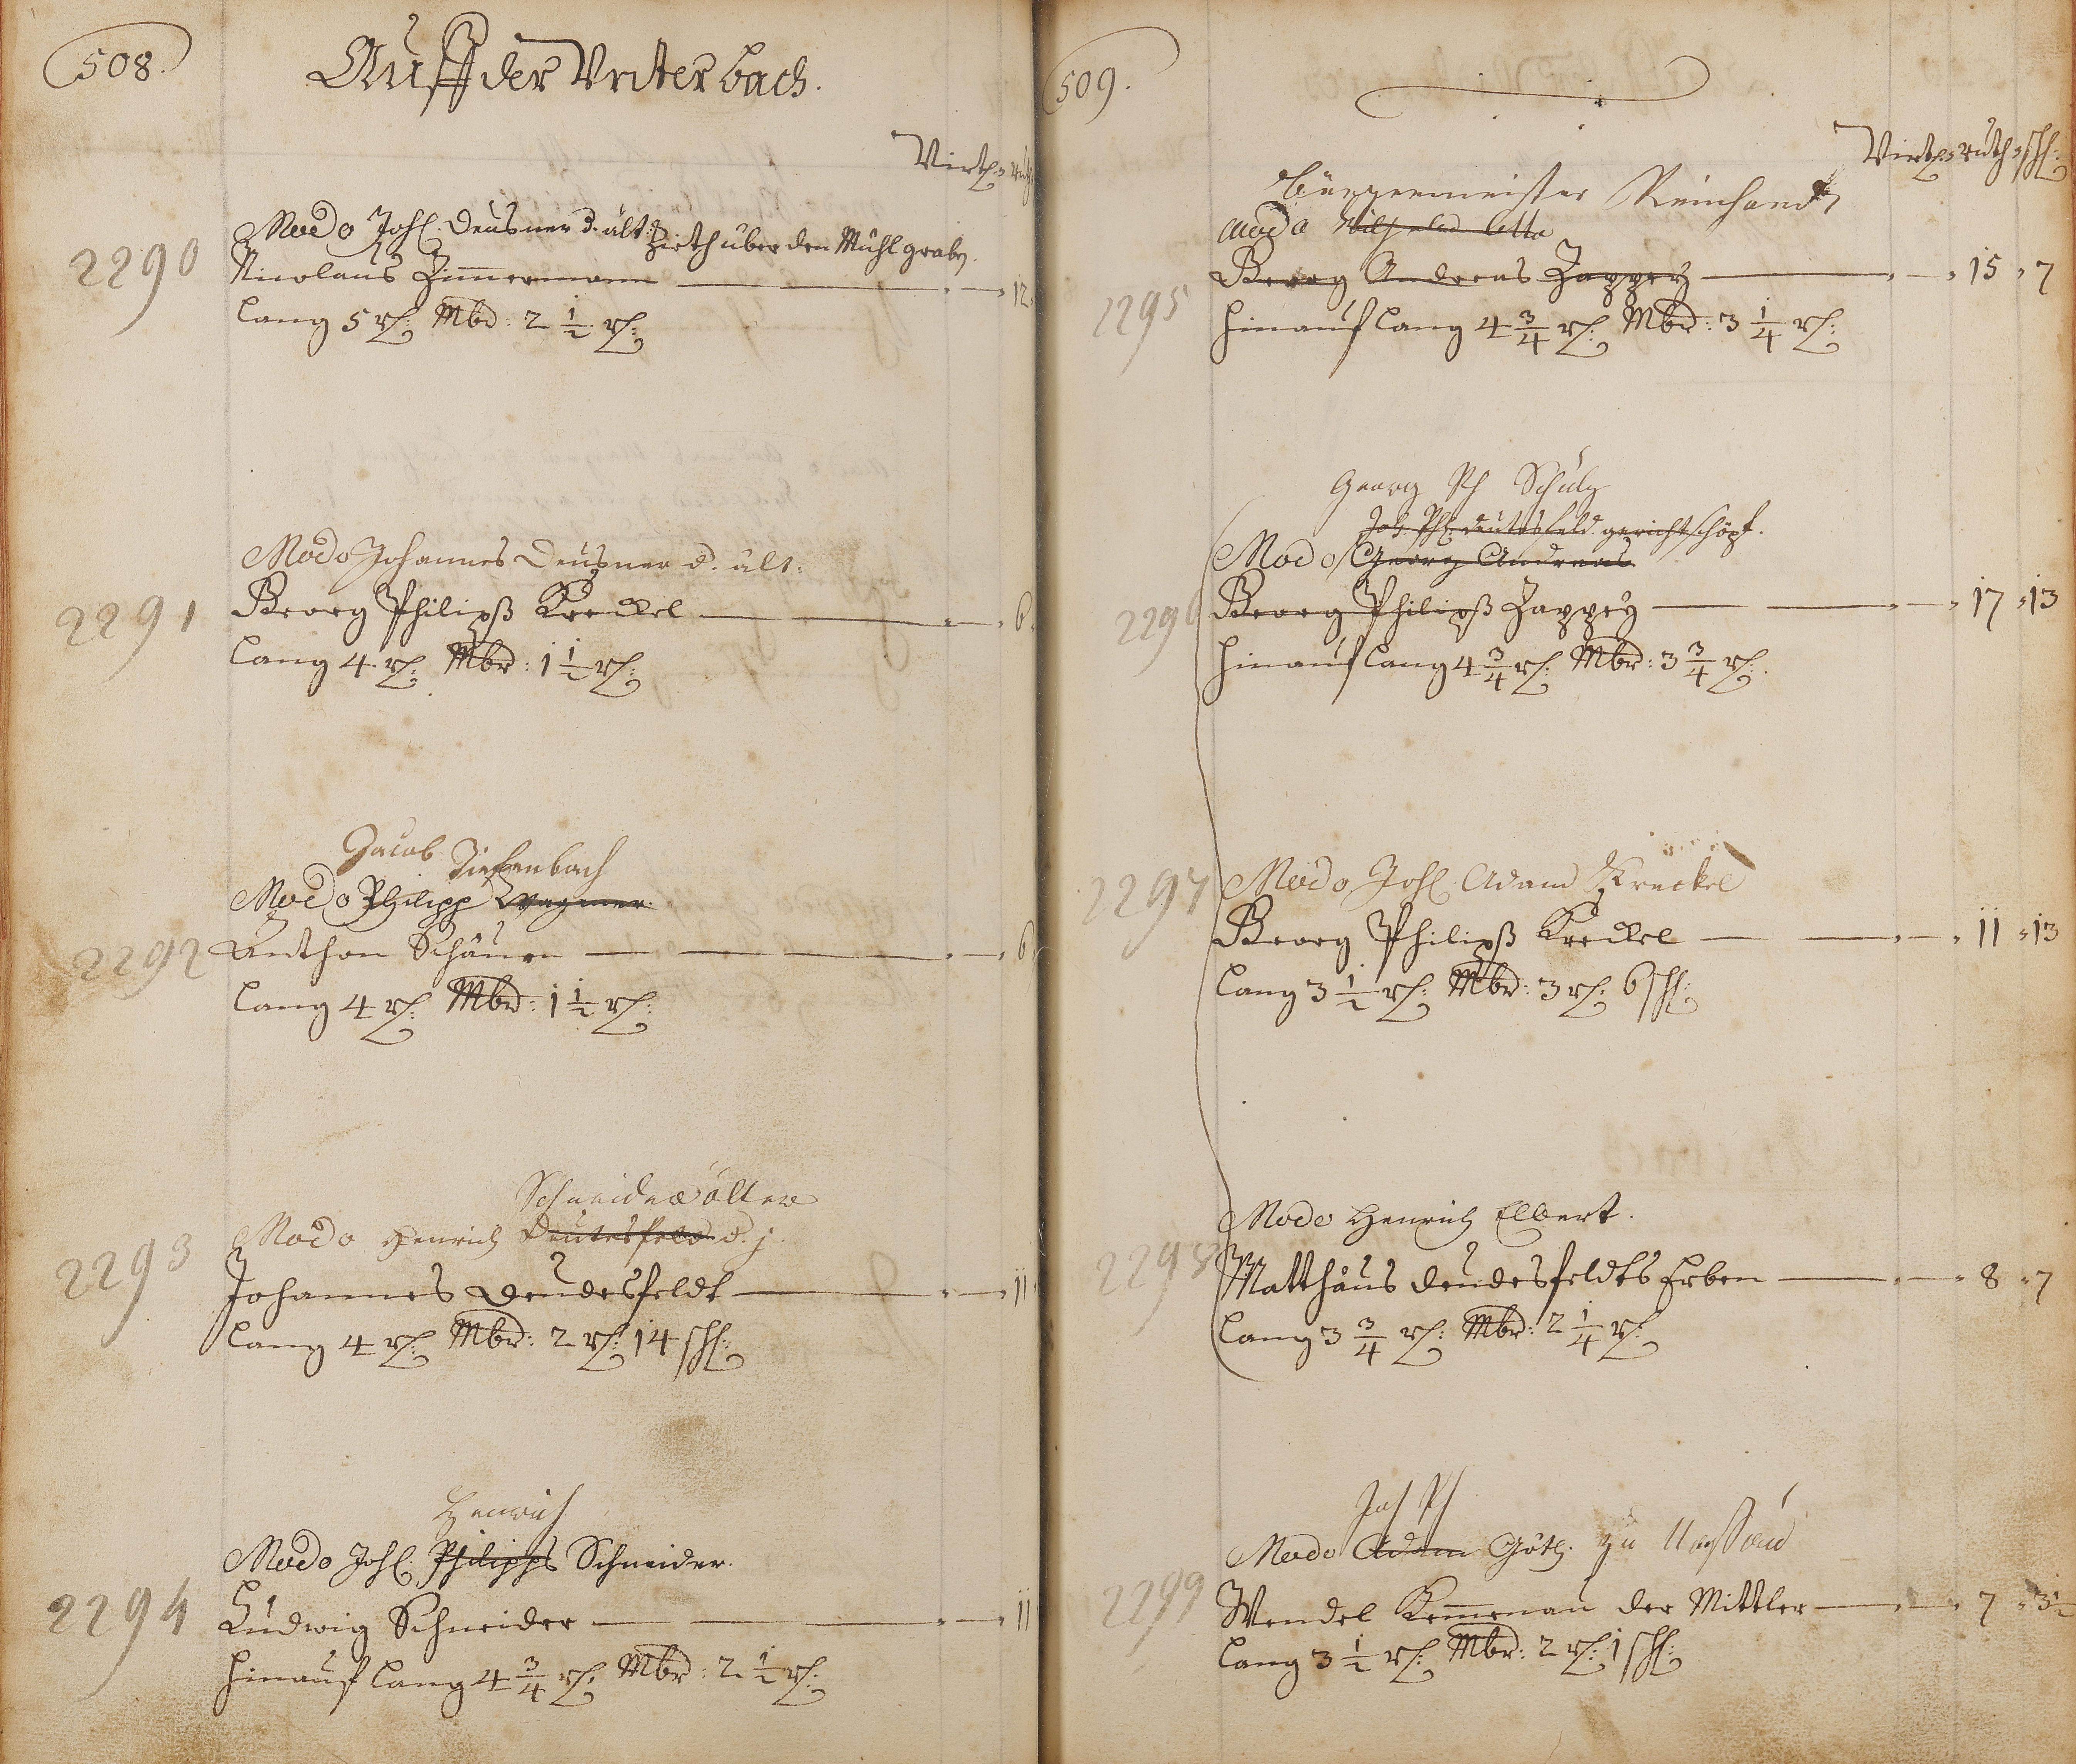 508.
Auff der Unterbach.
Virtl: ruth
Modo Joh: Deusner d. ält:
Zieth uber den Muhlgraben.
2290 Nicolaus Zimmermann 12
Lang 5 rl: Mbr: 2 1/2 rl:
Modo Johannes Deusner d. ält:
2291 Georg Philipß Kreckel 6
Lang 4 rl: Mbr: 1 1/2 rl:
Jacob Tiefenbach
Modo Philipp Wagner
2292 Anthon Schäuer 6
Lang 4 rl: Mbr: 1 1/2 rl:
Schneider älter
Modo Henrich Deutesfeld d. j.
2293 Johannes Deudesfeldt 11
Lang 4 rl: Mbr: 2 rl: 14 schl:
Henrich
Modo Joh: Philipps Schneider.
2294 Ludwig Schneider 11
hinauf Lang 4 3/4 rl: Mbr: 2 1/2 rl:
509.
Virtl: ruth schl:
Bürgermeister Reinhard
modo Otto
2295 Georg Andreas Zappeÿ 15 7
hinauf Lang 4 3/4 rl: Mbr: 3 1/4 rl:
Georg Ph Schulz
Joh. Phl: Deutesfeld gerichtschöpf.
Modo Georg Andreas
2296 Georg Philipß Zappeÿ 17 13
hinauf Lang 4 3/4 rl: Mbr: 3 3/4 rl:
Modo Joh: Adam Kreckel
2297 Georg Philipß Kreckel 11 13
Lang 3 1/2 rl: Mbr: 3 rl: 6 schl:
Modo Henrich Elbert.
2298 Matthäus Deudesfeldts Erben 8 7
Lang 3 3/4 rl: Mbr: 2 1/4 rl:
Joh Ph
Modo Adam Götz zu
2299 Wendel Kemmenau der Mittler 7 3 1/2
Lang 3 1/2 rl: Mbr: 2 rl: 1 schl: